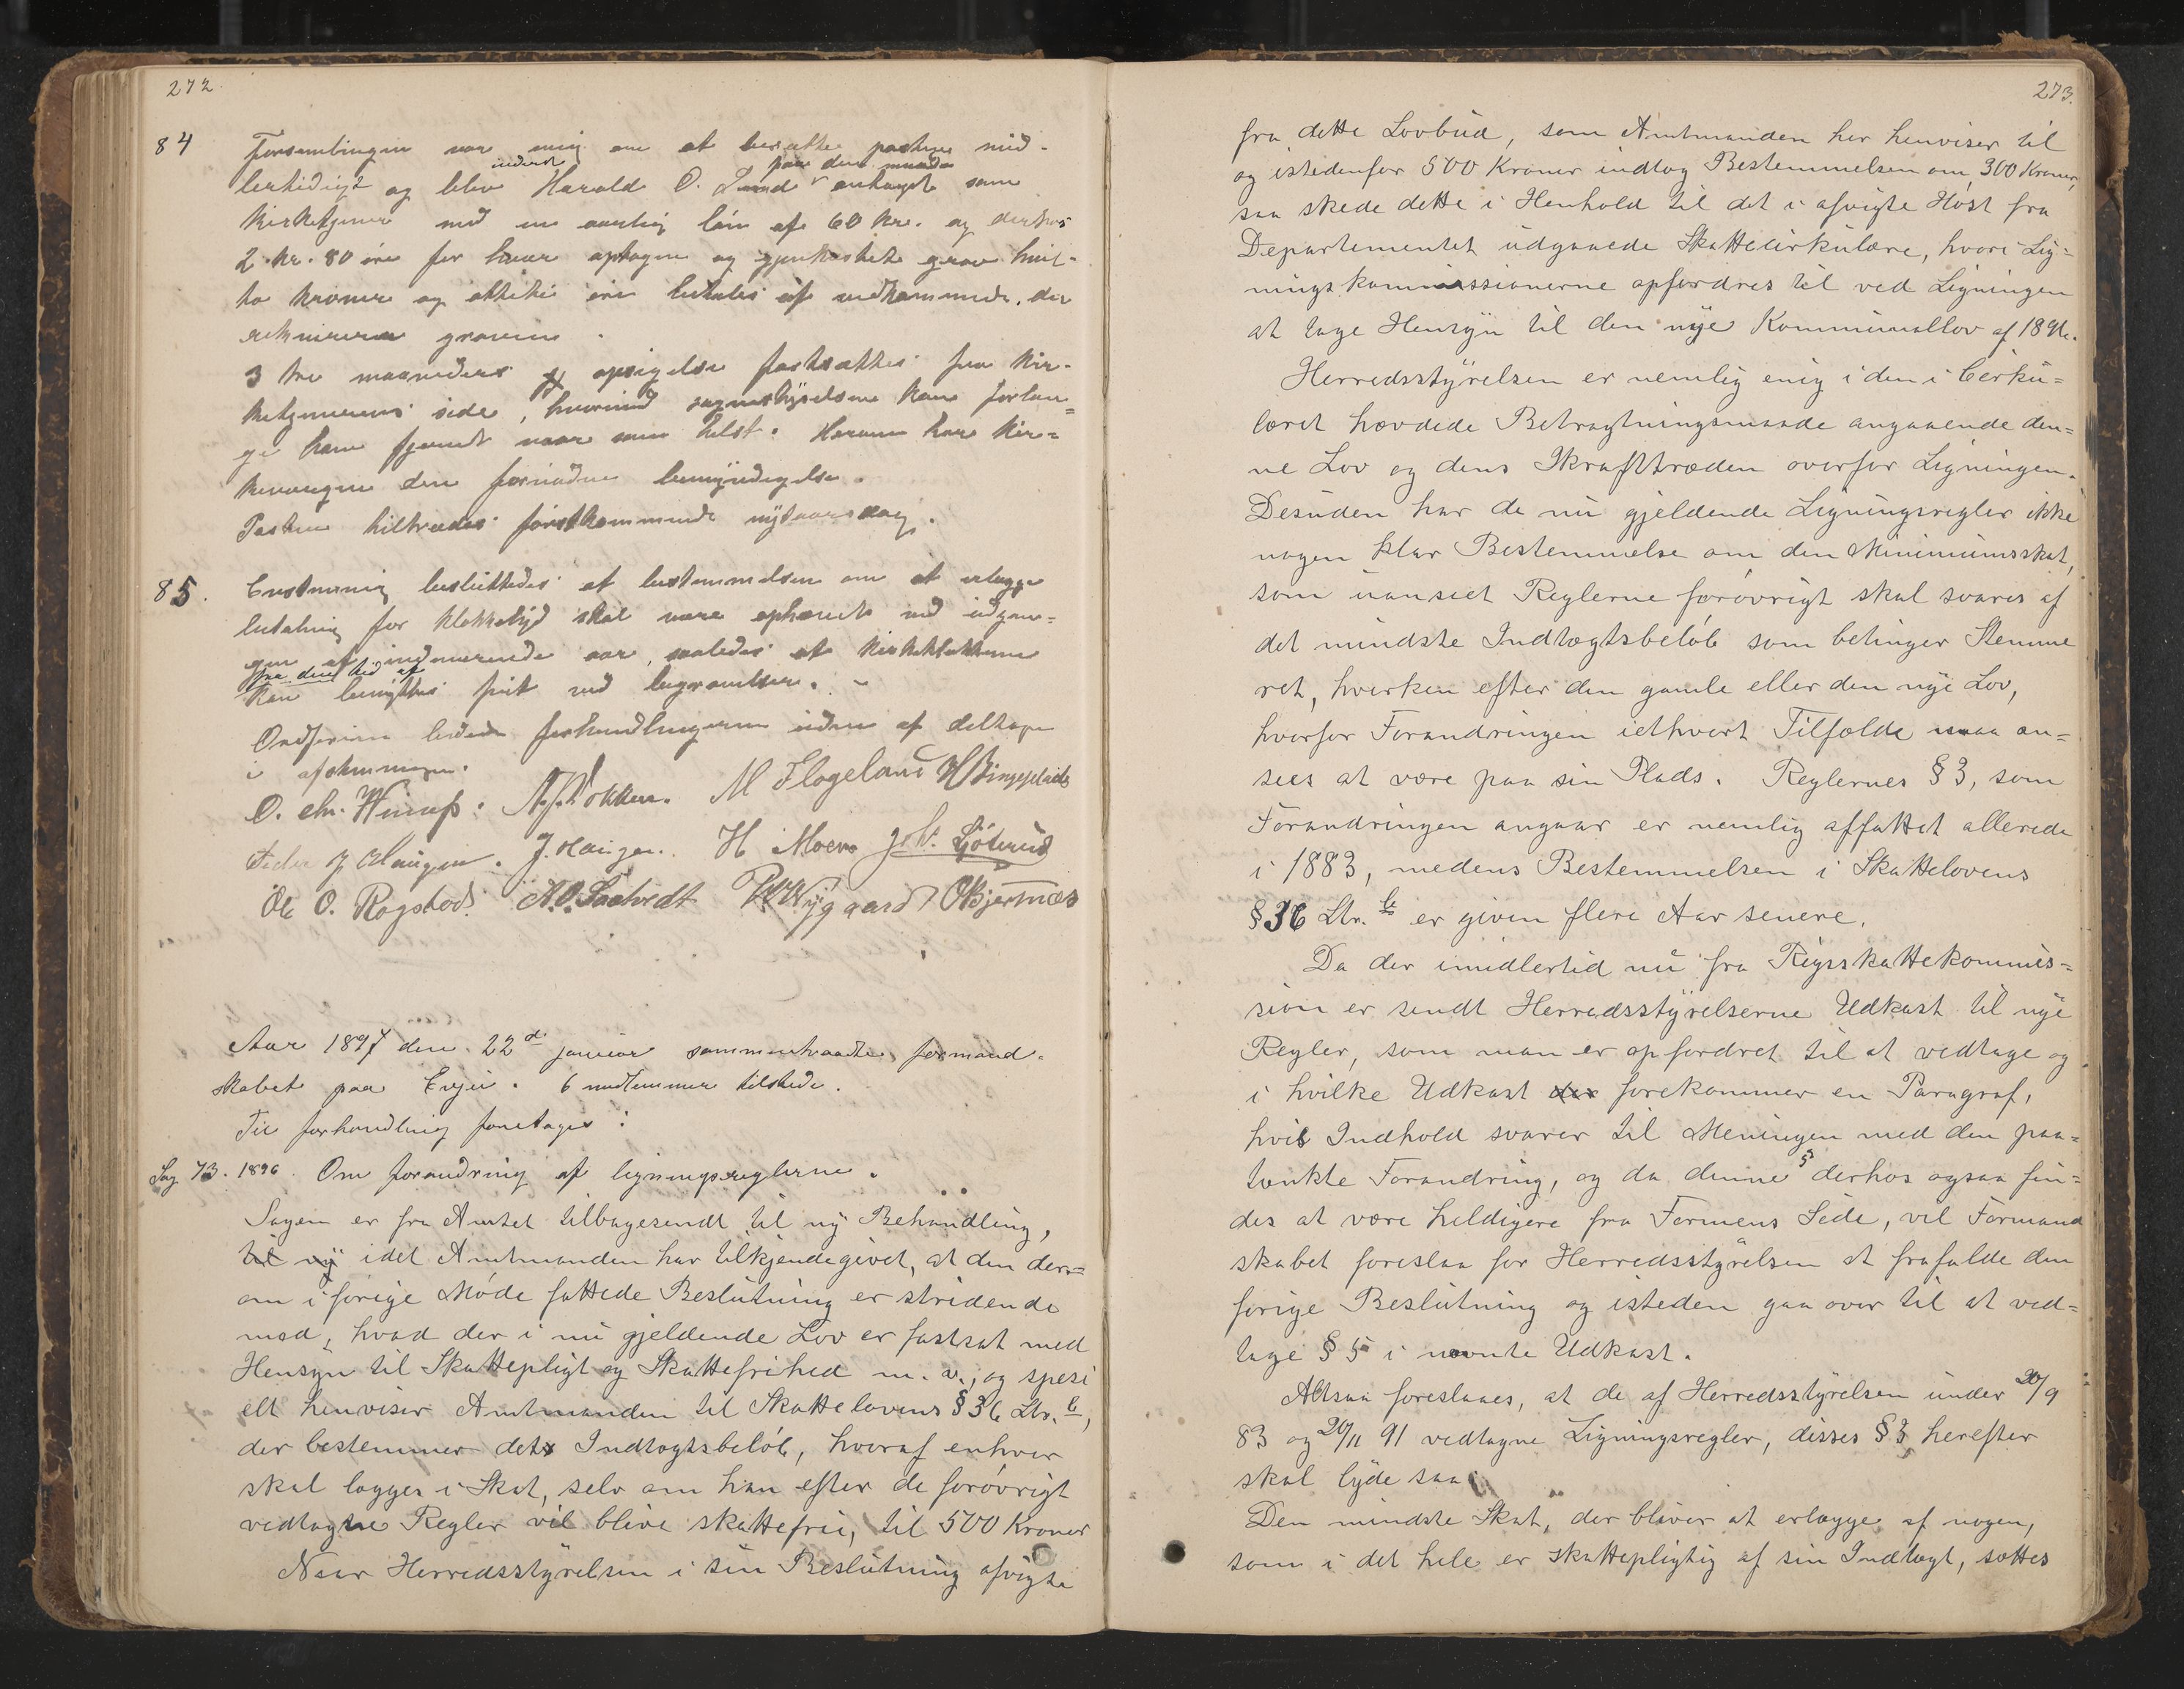 272.
84 Forsamlingen var enig om at besætte posten mid-
lertidigt og blev indeed Harald O. Lund paa den maade antaget som
kirketjener med en aarlig løn af 60 kr. og derhos
2 kr. 80 øre for hver optagen og gjenkastet grav hvil-
to kroner og otteti øre betales af vedkommende, der
rekvirerer graven.
3 tre maaneders opsigelse fastsættes fra kir-
ketjenerens side, hvorimod sognestyrelsen kan forlan-
ge ham fjernet naar som helst. Herom har kir-
keværgen den fornødne bemyndigelse.
Posten tiltrædes førstkommende nytaarsdag.
85. Enstemmig besluttedes at bestemmelsen om at erlægge
betaling for klokkelyd skal være ophævet ved udgan-
gen af indeværende aar, saaledes at kirkeklokkerne
fra den tid af
kan benyttes frit ved begravelser. -
Ordføreren ledede forhandlingerne uden at deltage
i afstemningen.
O. Chr. Wiraas. A. Dokken. M Flogeland
Haugen. J. Hauger. H Moen
Ole O. Rogstad. A. O. Saatvedt Nygaard O Bjertnæs
Aar 1897 den 22d januar sammentraadte formand-
skabet paa Evju. 6 medlemmer tilstede.
Til forhandling foretages:
Sag 73. 1896. Om forandring af ligningsreglerne.
Sagen er fra Amtet tilbagesendt til ny Behandling,
til ny idet Amtmanden har tilkjendegivet, at den der-
om i forige Møde fattede Beslutning er stridende
mod, hvad der i nu gjeldende Lov er fastsat med
Hensyn til Skattepligt og Skattefrihed m. v.; og spesi
elt henviser Amtmanden til Skattelovens § 36 Ltr. b,
der bestemmer det Indtægtsbeløb, hvoraf enhver
skal lægges i Skat, selv om han efter de forøvrigt
vedtagne Regler vil blive skattefrei, til 500 Kroner
Naar Herredsstyrelsen i sin Beslutning afvigte
273.
fra dette Lovbud, som Amtmanden her henviser til
og istedenfor 500 Kroner indtog Bestemmelsen om 300 Kroner,
saa skede dette i Henhold til det i afvigte Høst fra
Departementet udgaaede Skattecirkulære, hvori Lig-
ningskommissionerne opfordres til ved Ligningen
at tage Hensyn til den nye Kommunallov af 1896.
Herredsstyrelsen er nemlig enig i den i Cirku-
læret hævdede Betragtningsmaade angaaende den-
ne Lov og dens Ikrafttræden overfor Ligningen.
Desuden har de nu gjeldende Ligningsregler ikke
nogen klar Bestemmelse om den Minimumsskat,
som uanseet Reglerne forøvrigt skal svares af
det mindste Indtægtsbeløb som betinger Stemme
ret, hverken efter den gamle eller den nye Lov,
hvorfor Forandringen iethvert Tilfælde maa an-
sees at være paa sin Plads. Reglernes § 3, som
Forandringen angaar er nemlig affattet allerede
i 1883, medens Bestemmelsen i Skattelovens
§ 36 Ltr. b er given flere Aar senere.
Da der imidlertid nu fra Rigsskattekommis-
sion er sendt Herredsstyrelserne Udkast til nye
Regler, som man er opfordret til at vedtage og
i hvilke Udkast der forekommer en Paragraf,
hvis Indhold svarer til Meningen med den paa-
tænkte Forandring, og da denne § derhos ogsaa fin-
des at være heldigere fra Formens Side, vil Formand
skabet foreslaa for Herredsstyrelsen at frafalde den
forige Beslutning og isteden gaa over til at ved-
tage § 5 i nævnte Udkast.
Altsaa foreslaaes, at de af Herredsstyrelsen under 20/9
83 og 20/11 91 vedtagne Ligningsregler, disses § 3 herefter
skal lyde saa:
Den mindste Skat, der bliver at erlægge af nogen,
som i det hele er skattepligtig af sin Indtægt, sættes